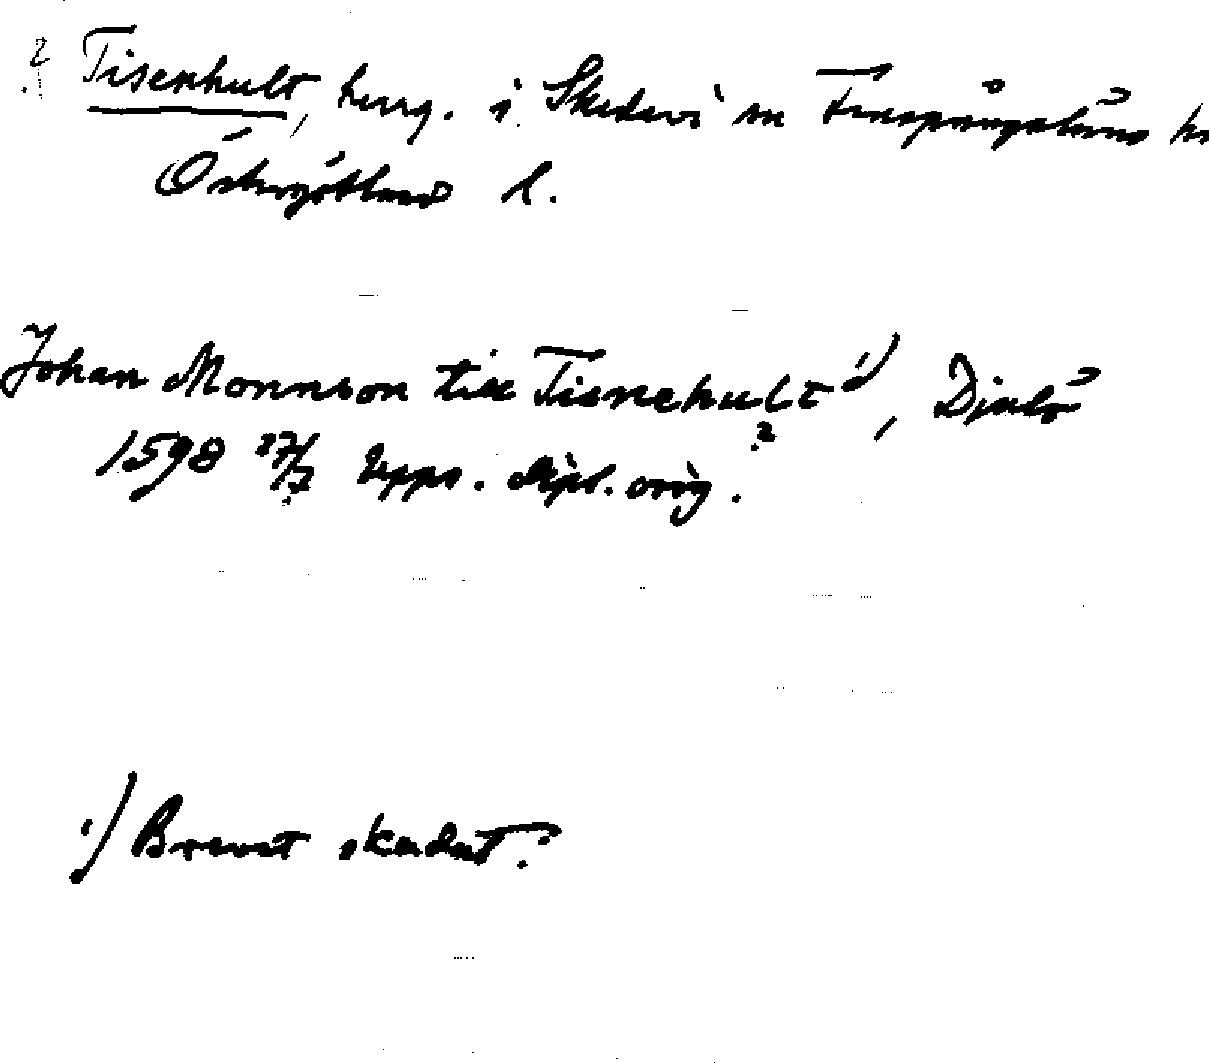 ? Tisenhult, herrg. i Skedevi sn Finspångaläns hd
Östergötland l.
Johan Monnson till Tisnehult 1), Djulö
?
1598 27/7 Upps. dipl. orig.
1) Brevet skadat.